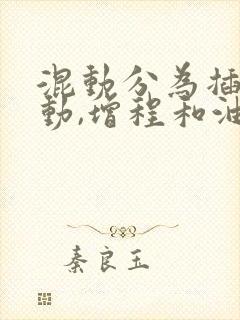 混動分為插
動,增程和油
秦良玉